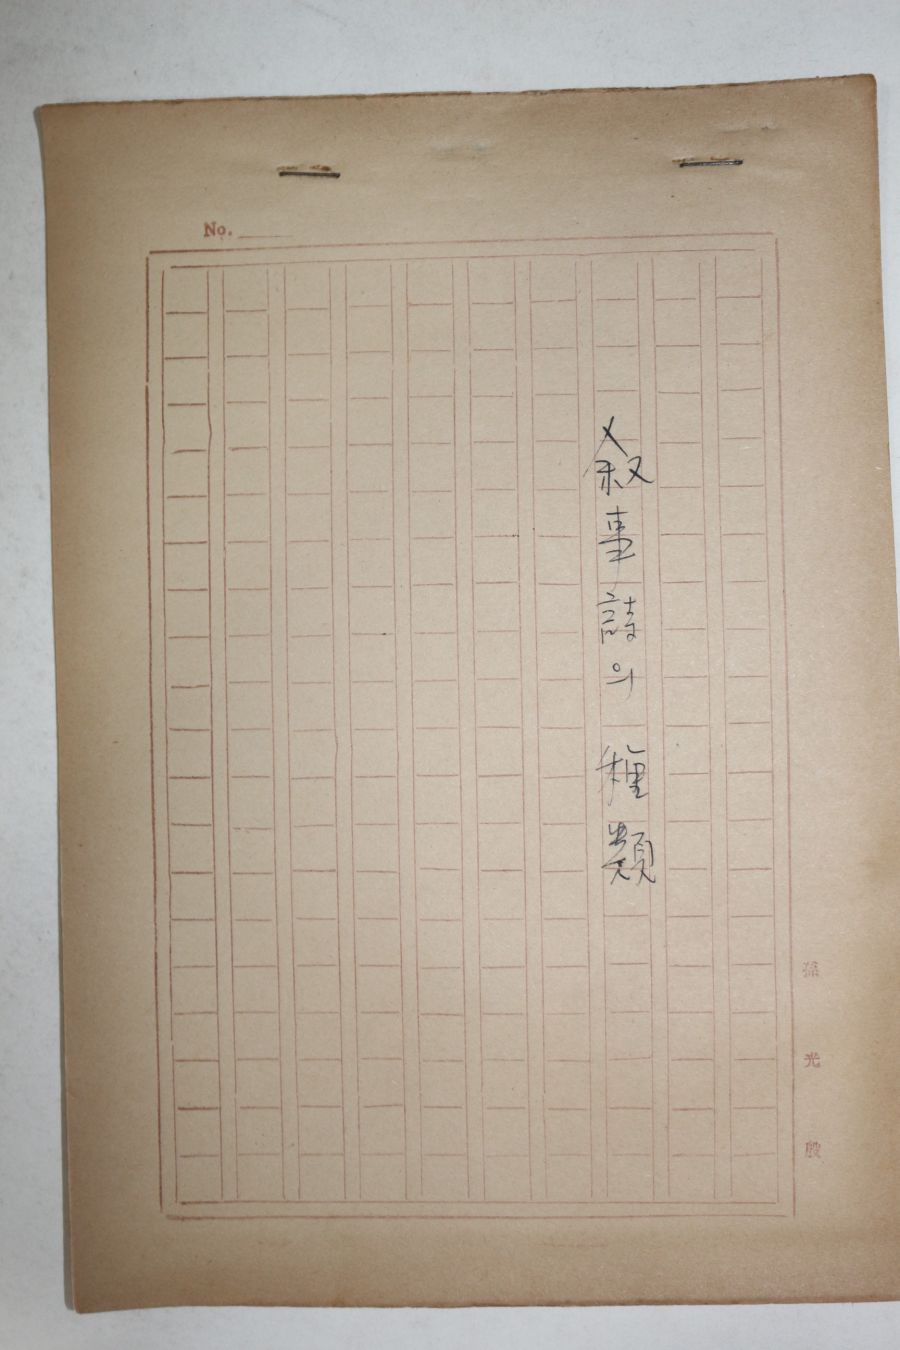 No.
敍事詩의 種類
孫光殷